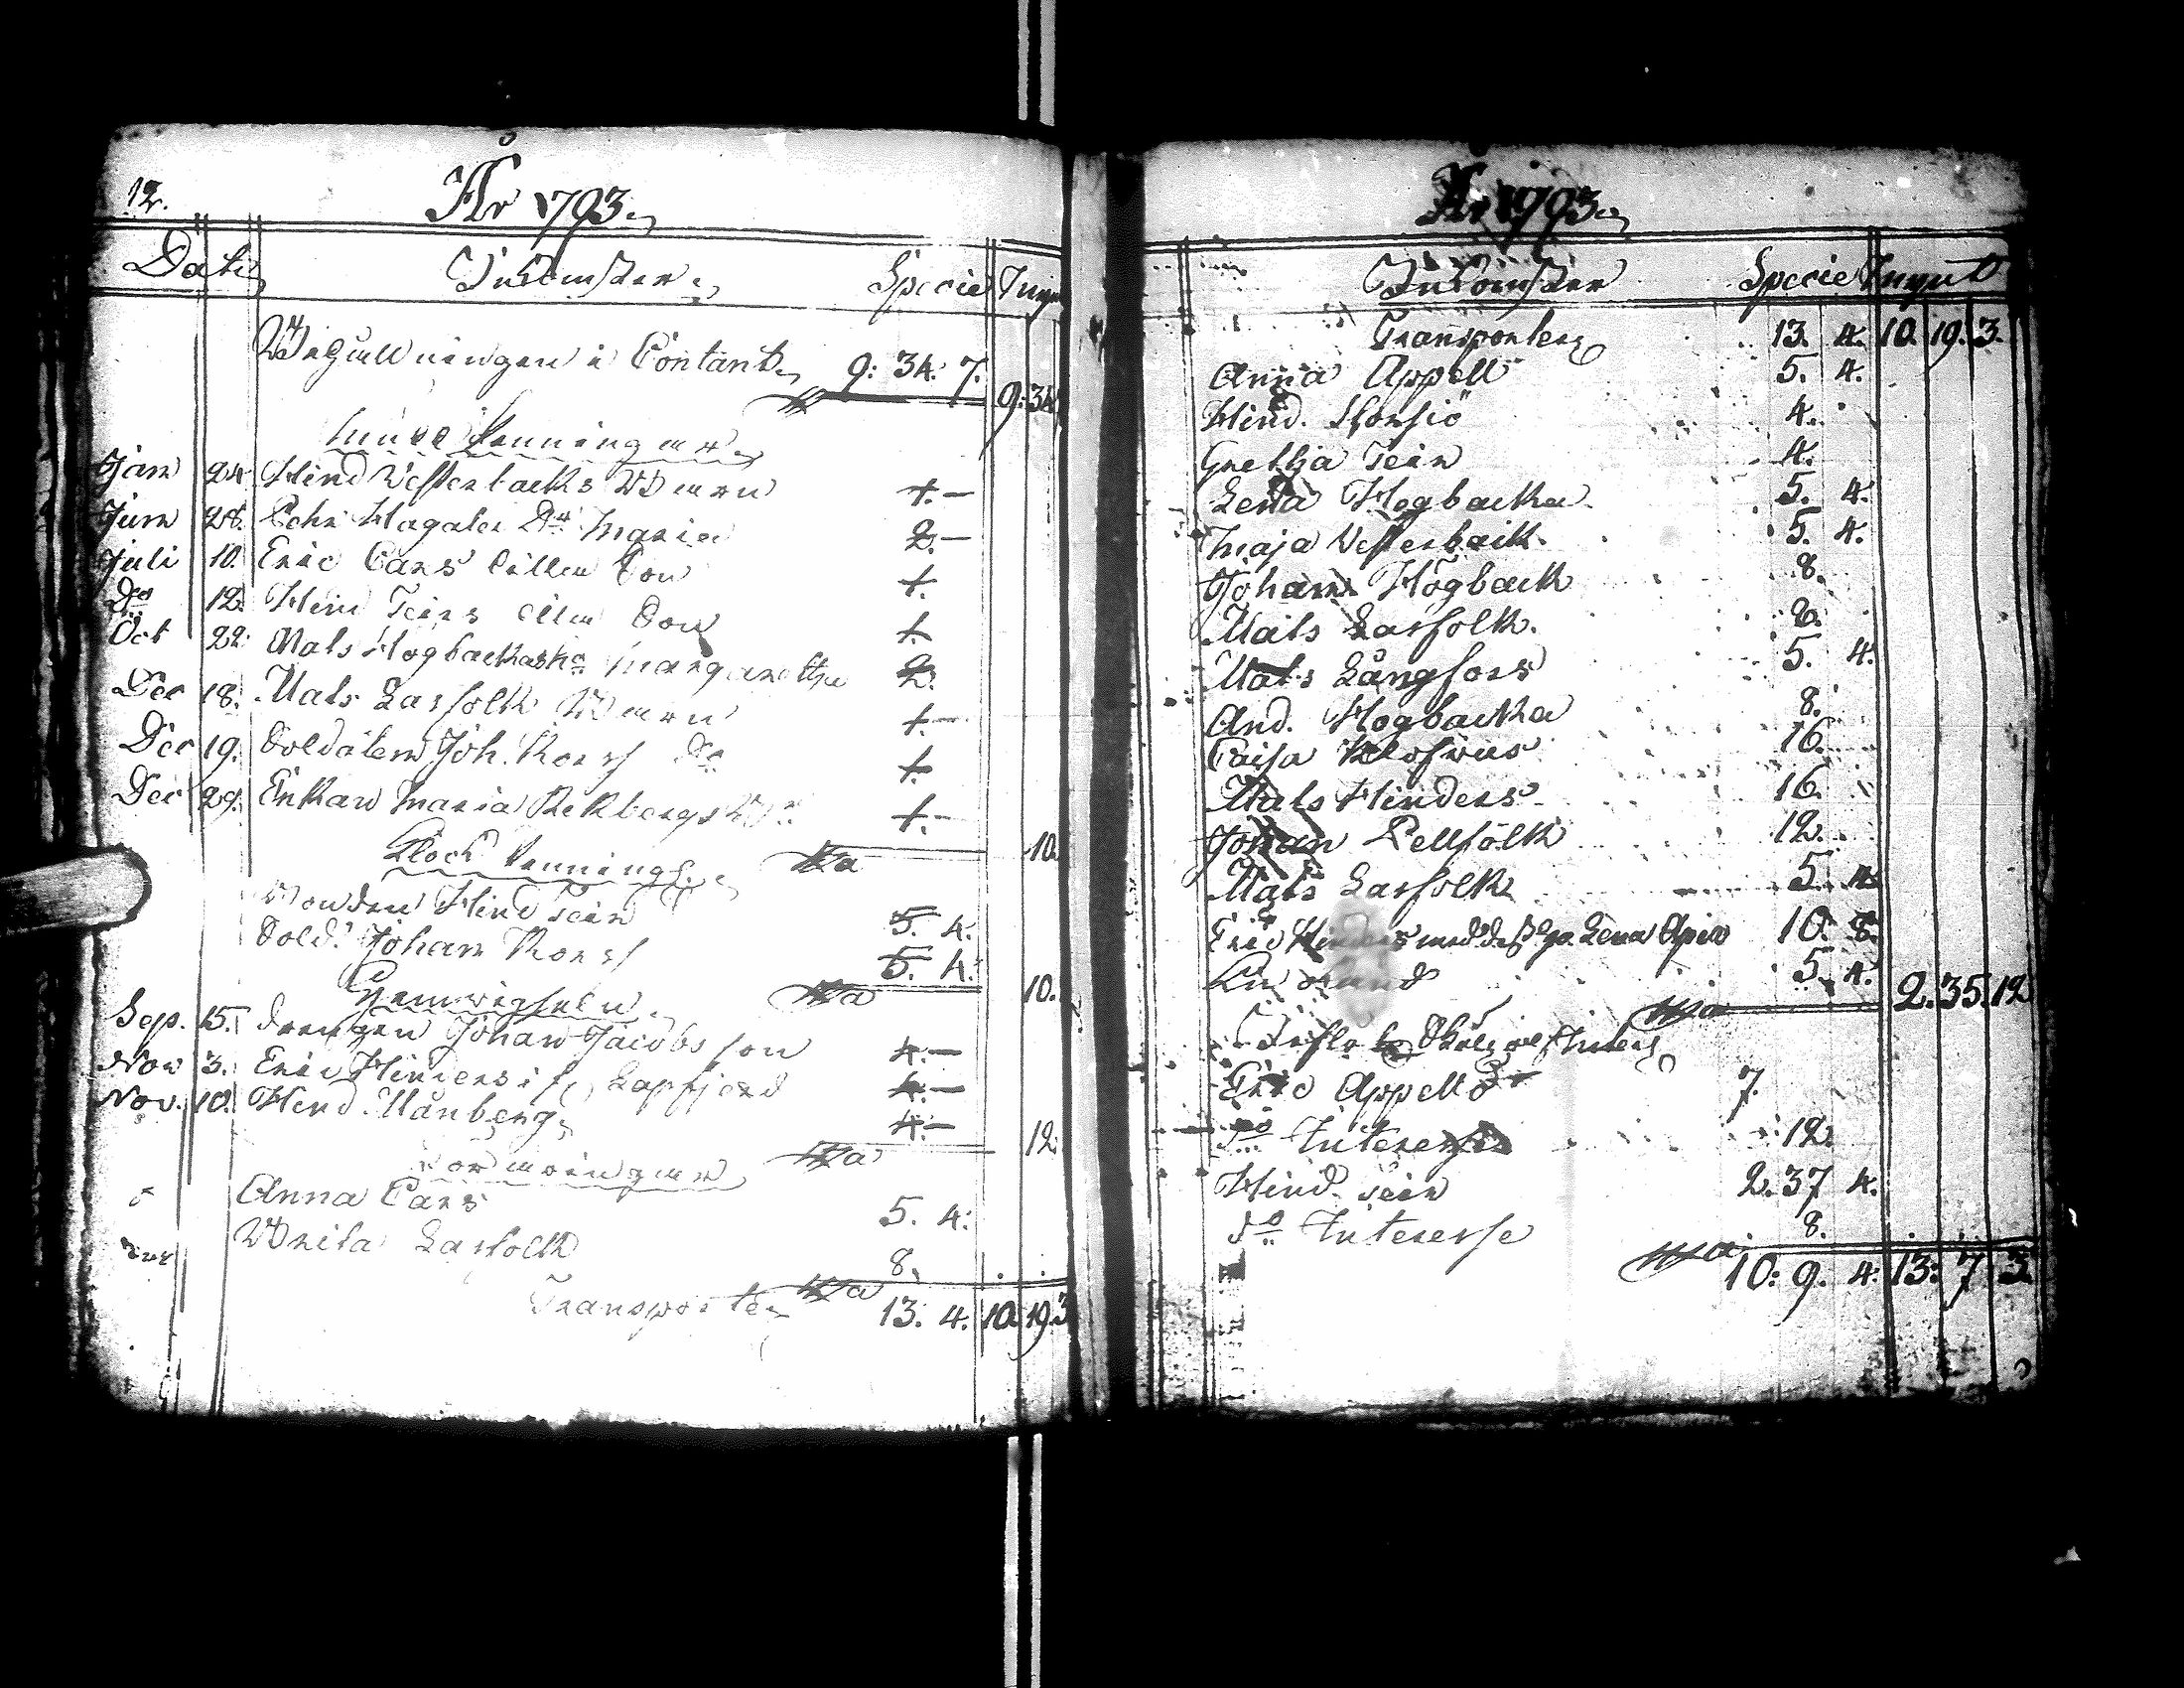 12.
År 1793.
Dato Inkomster. Specie Ingut
Behållningen i Contant. 9: 34: 7. 9: 34
Penningar.
Jan 24 Hind Westerbacks Barn 4.–
Jun 28. Maria 2.–
Juli 10. Eric Pars lillan Son 4.
Do 12. Hind Teirs lillan Son 4.
Oct 22. Mats Högbackas Ho Margaretha 2.
Dec 18. Mats Larsfolk Barn 4.–
Dec 19. Soldaten Joh. Korss Do 4.
Dec 29. Enkan Maria Rekbergs Bn 4.–
Klock Penning. Sa 10.
Bonden Hind Teir 5. 4.
Sold. Johan Korss 5. 4.
Sa 10.
Sep. 15. drengen Johan Jacobsson 4.–
Nov 3. Eric Hinders i Lapfjerd 4.–
Nov. 10. Hind. Månberg. 4.–
Sa 12.
Anna Pars 5. 4.
Brita Larsfolk 8.
Transporte Sa 13. 4. 10. 19. 3
År 1793.
Inkomster Specie Ingut
Transporter 13. 4. 10. 19. 3.
Anna Appell 5. 4.
Hind. Storsiö 4.
Gretha Teir 4.
Lena Högbacka 5. 4.
Maja Westerback. 5. 4.
Johan Högback 8.
Mats Larsfolk. 2.
Mats Långfors 5. 4.
And. Högbacka 8.
Caisa Klofvus 16.
Mats Hinders 16.
Johan Pellfolk 12.
Mats Larsfolk 5. 4.
Eric Hinders med dess Lena 10. 8.
5. 4.
Sa 2. 35. 12
Eric Appellö 7.
do Interesse 12.
Hind. Teir 2. 37 4.
do Interesse 8.
Sa 10: 9. 4: 13: 7 3